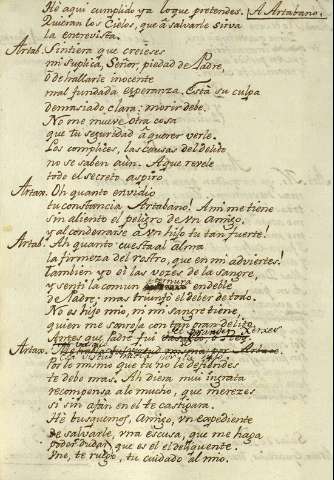 Hé aqui cumplido ya lo que pretendes. A Artabano.
Quieran los Cielos, que á salvarle sirva
la entrevista.
Artab. Sintiera que creieses
mi suplica, Señor, piedad de Padre,
ó de hallarle inocente
mal fundada esperanza. Está su culpa
demasiado clara: morir debe.
No me mueve otra cosa
que tu seguridad á querer verle.
Los complices, las causas del delito
no se saben aùn. A que revele
todo el secreto aspiro
Artax. Oh quanto envidio
tu constancia Artabano! A mi me tiene
sin aliento el peligro de vn Amigo,
y al condenarse á vn hijo tu tan fuerte!
Artab. Ah quanto cuesta al alma
la firmeza del rostro, que en mi adviertes!
Tambien yo oí las vozes de la sangre,
y senti la comun ternura endeble
de Padre; mas triunfó el deber de todo.
No es hijo mio, ni mi sangre tiene,
quien me sonroja con tan gran delito.
Antes que Padre fui
Xerxes
Artax.
Por lo mismo que tu no le defiendes
te debo mas. Ah diera mui ingrata
recompensa á lo mucho, que merezes
si sin afan en el te castigara.
Hé busquemos, Amigo, vn expediente
de salvarle, vna escusa, que me haga
poder dudar, que es el el delinquente.
Vne, te ruego, tu cuidado al mio.